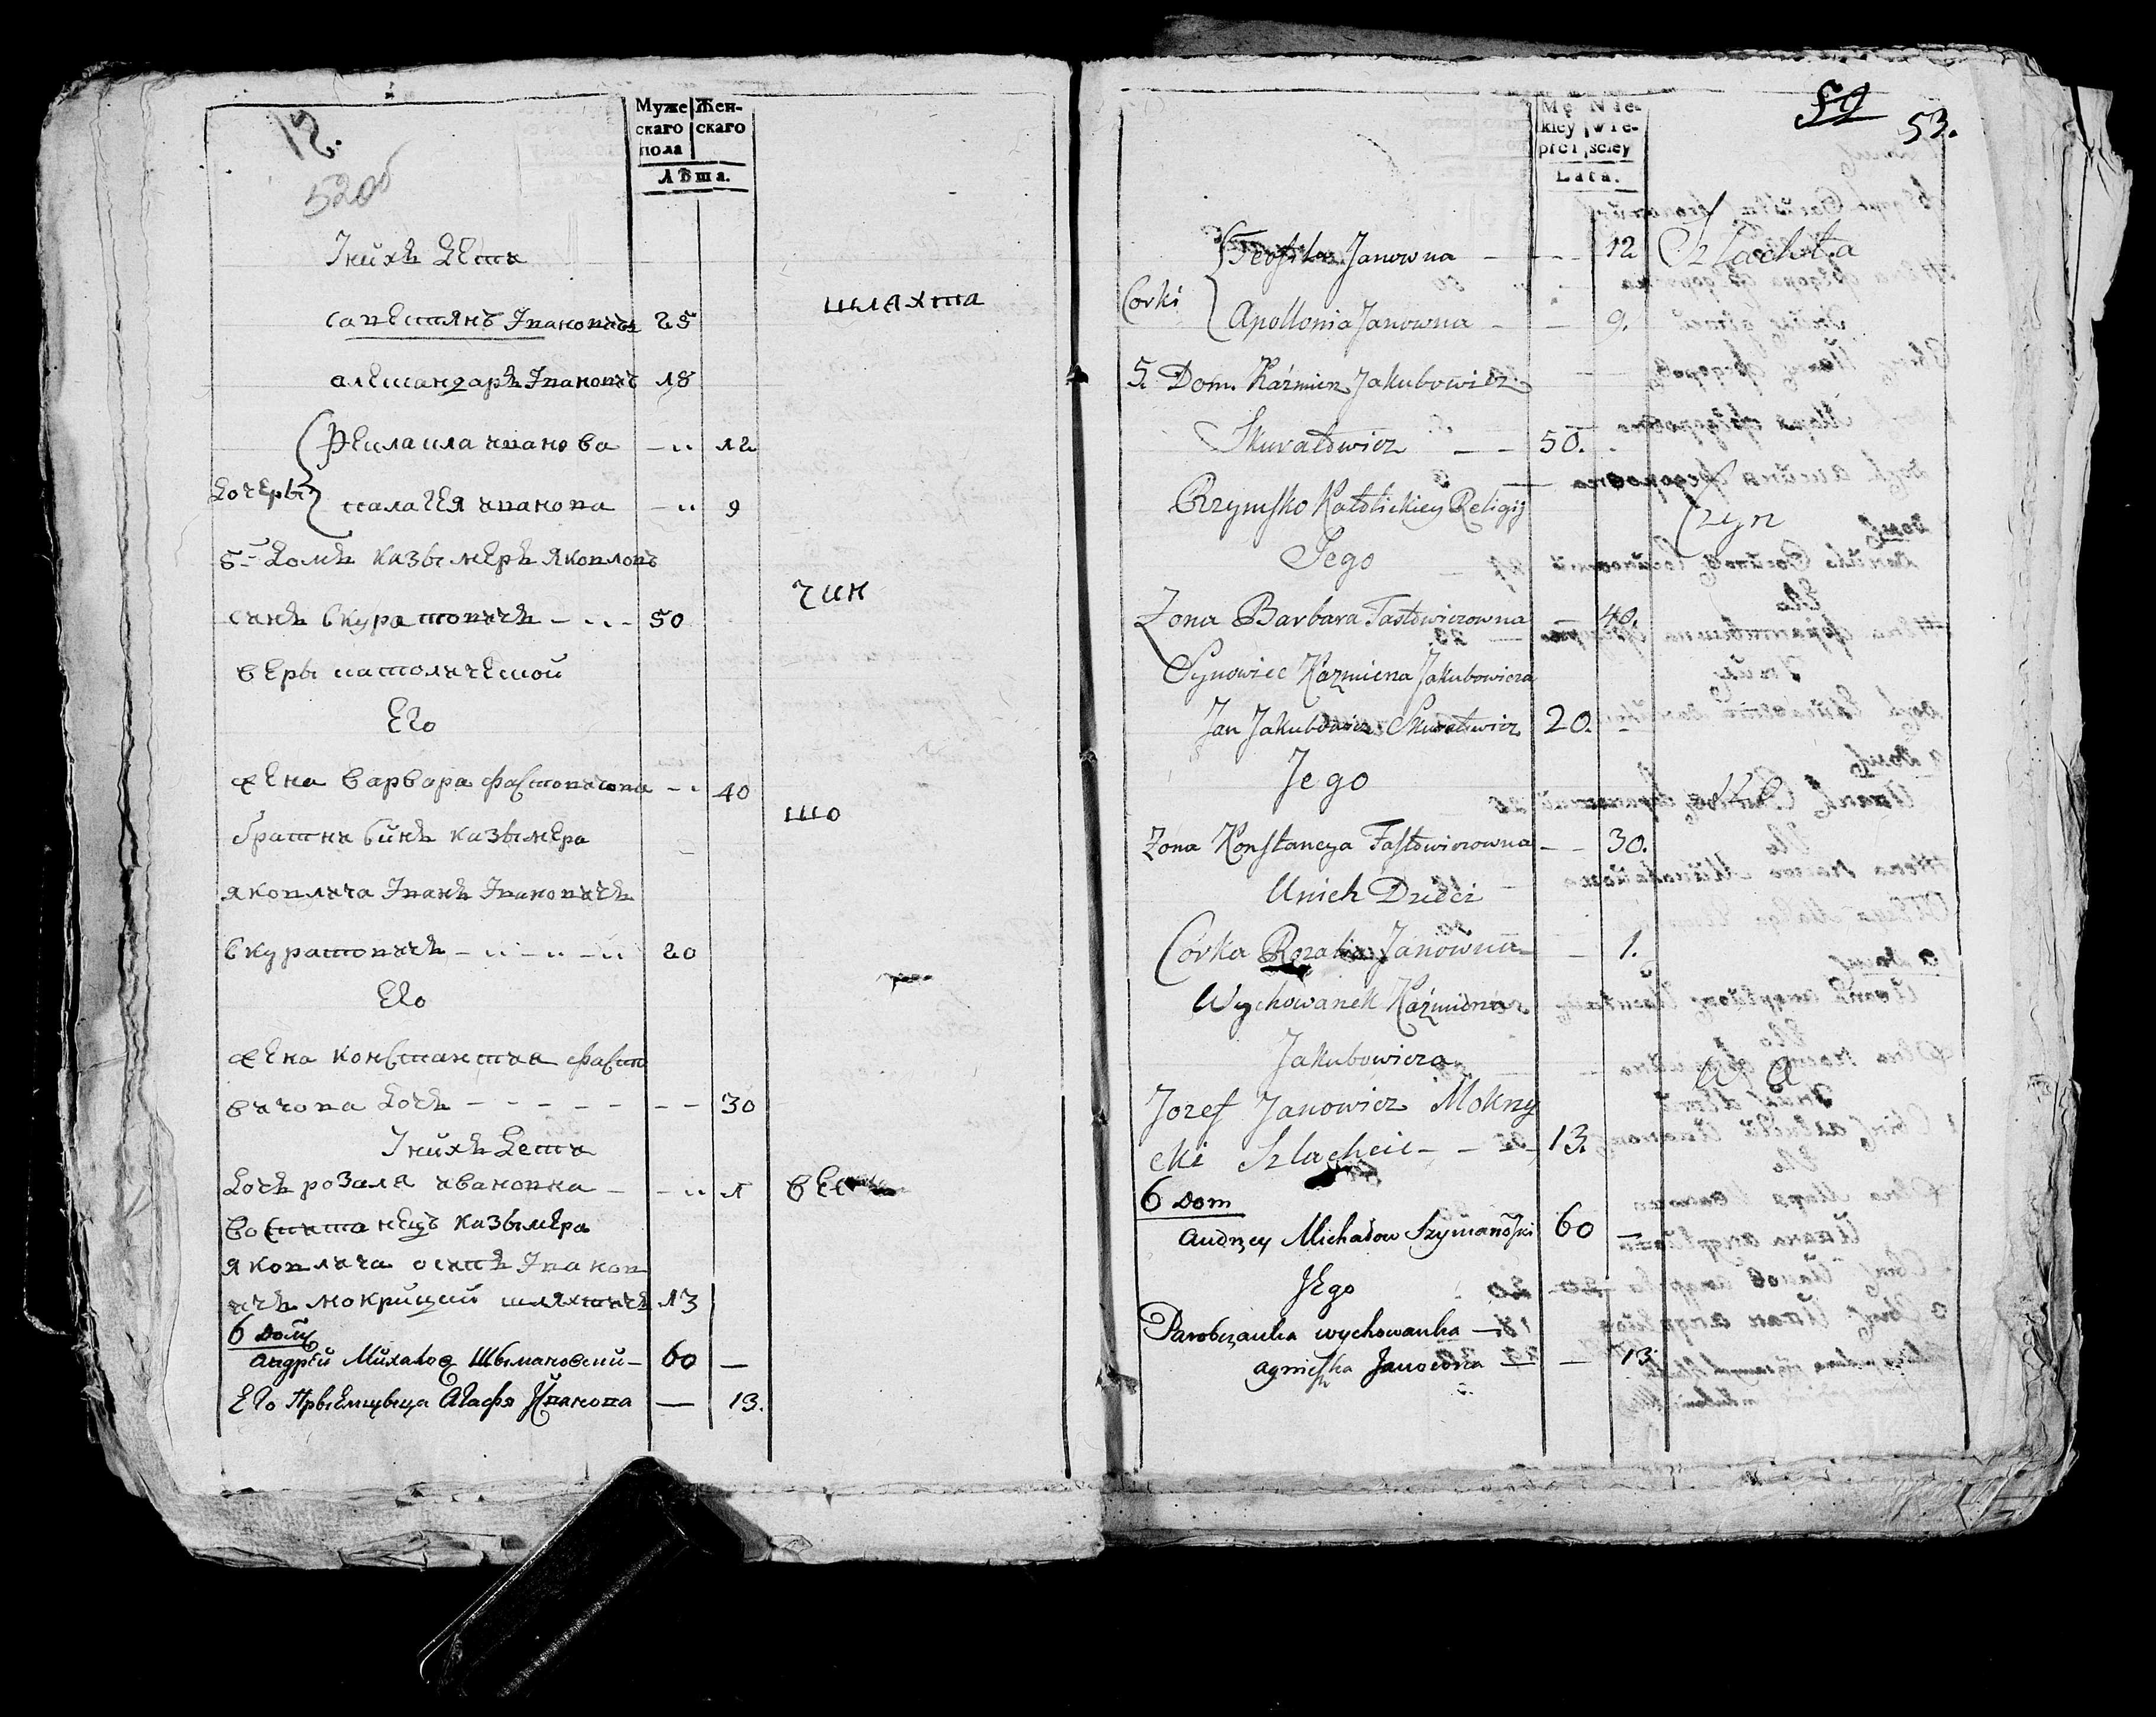 12.
52об
Муже Жен-
скаго скаго
пола
Лѣта.
Ihuхъ дети
сапестянъ Iвановичъ 25
шляхта
александаръ Iвановъ 18
Феилаила ивановa 12
дочеры
палагея иванова 9
5 домъ казымеръ яковловъ
чин
синъ скуратовичъ 50
веры католической
Его
жена варвара фастовичова 40
що
братни синъ казымера
яковлича Iванъ Iвановичъ
скуратовичъ 20
Его
жена константия фасто
вичова дочъ 30
Iнихъ дети
дочъ розаля ивановна 1
воспитанецъ казымера
яковлича осипъ Iванов
ичъ мокрицкий шляхтичъ 13
6 домъ
Андрей Михалов Шымановский 60 —
Его Прыемщыца Агафя Иванова — 13.
Mę Nie-
kiey wie-
płci sciey
Lata.
59 53.
Teofila Janowna 12 Szlachta
Corki
Apollonia Janowna 9.
5. Dom. Kaźmierz Jakubowicz
Skuratowicz 50.
Rzymsko Katolickiey Religij
czyn
Jego
Zona Barbara Fastowiczowna 40.
Synowiec Kazmierza Jakubowicza
Jan Jakubowicz Skuratowicz 20.
Jego
Zona Konstancya Fastowiczowna 30.
Unich Dzieci
Corka Rozalia Janowna 1.
Wychowanek Kaźmierza
Jakubowicza
Jozef Janowicz Mokrzy
cki Szlachcic 13.
6 Dom
Andrzey Michałow Szymański 60 —
Jego
Parobczanka wychowanka —
Agniszka Janowna — — 13